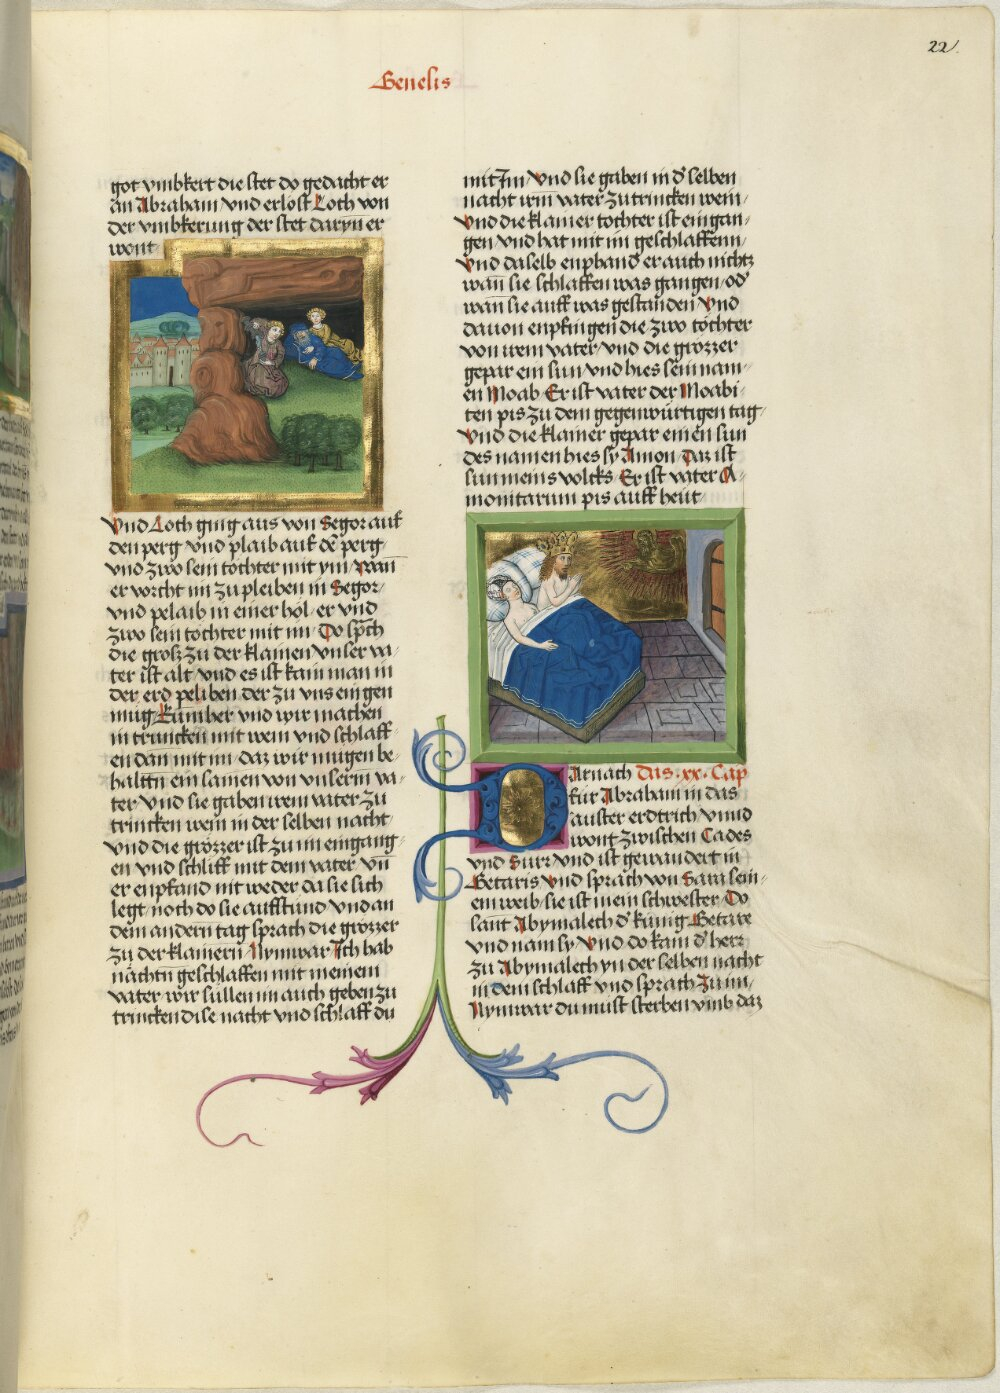 22
Genesis
got vmbkert die stet do gedacht er
an Abraham vnd erlost Loth von
der vmbkerung der stet daryn er
wont
Vnd Loth ging aus von Segor auf
den perg vnd plaib auf dē perg
vnd zwo sein tochter mit ym wan
er vorcht im zu pleiben in Segor
vnd pelaib in einer höl er vnd
zwo sein tochter mit im Do sp̄ch
die gross zu der klainen vnser va-
ter ist alt vnd es ist kain man in
der erd peliben der zu vns ein gen
mug Kum her vnd wir machen
in truncken mit wein vnd schlaff
en dan mit im daz wir mügen be-
haltn̄ ein samen von vnserm va-
ter vnd sie gaben irem vater zu
trincken wein in der selben nacht
vnd die grözzer ist zu im eingang
en vnd schlieff mit dem vater vn̄
er enpfand nit weder da sie sich
legt noch do sie auffstund vnd an
dem andern tag sprach die grözzer
zu der klainern Nymwar Ich hab
nächtn geschlaffen mit meinem
vater wir süllen im auch geben zu
trincken dise nacht vnd schlaff du
mit Im vnd sie gaben in d' selben
nacht irm vater zu trincken wein
vnd die klainer tochter ist eingan-
gen vnd hat mit im geschlaffenn
vnd daselb enpband er auch nichtz
wān sie schlaffen was gangen od'
wan sie auff was gestanden vnd
dauon enpfingen die zwo töchter
von irem vater vnd die grözzer
gepar ein sun vnd hies sein nam-
en Moab Er ist vater der Moabi-
ten pis zu dem gegenwürtigen tag
Vnd die klainer gepar einen sun
des namen hies sy Amon Daz ist
sun meins volcks Er ist vater A-
monitarum pis auff heut
Arnach Das .xx. Cap
für Abraham in das
auster erdtrich vnnd
wont zwischen Cades
vnd Surr vnd ist gewandert in
Getaris vnd sprach von Sara sein-
em weib sie ist mein schwester Do
sant Abymalech d' künig Getare
vnd nam sy vnd do kam d' herr
zu Abymalech yn der selben nacht
in dem schlaff vnd sprach zu im
Nymwar du must sterben vmb daz